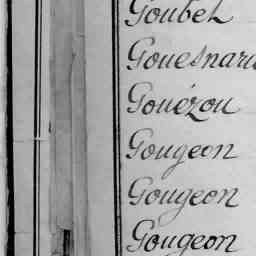 Goubet
Gouesnard
Gouézou
Gougeon
Gougeon
Gougeon